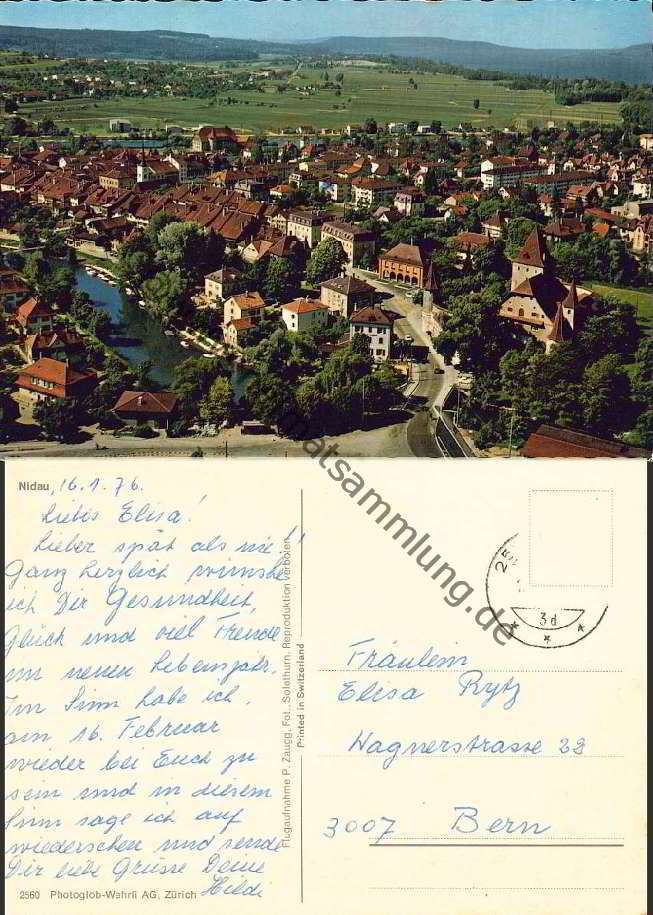 Nidau, 16.1.76.
Liebes Elisa!
Lieber spät als nie!!
Ganz herzlich wünsche
ich Dir Gesundheit,
Glück und viel Freude
im neuen Lebensjahr.
Im Sinn habe ich,
am 16. Februar
wieder bei Euch zu
sein und in diesem
Sinn sage ich auf
wiedersehen und sende
Dir liebe Grüsse Deine
Hildi
2560 Photoglob-Wehrli AG, Zürich
Flugaufnahme P. Zaugg, Fot., Solothurn. Reproduktion verboten
Printed in Switzerland
3d
Fräulein
Elisa Rytz
Wagnerstrasse 28
3007 Bern
matsammlung.de